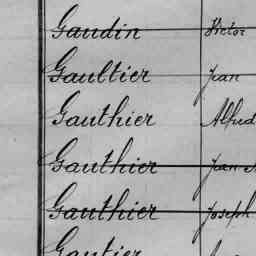 Gaudin Victor
Gaultier Jean
Gauthier Alfred
Gauthier Jean
Gauthier Joseph
Gautier